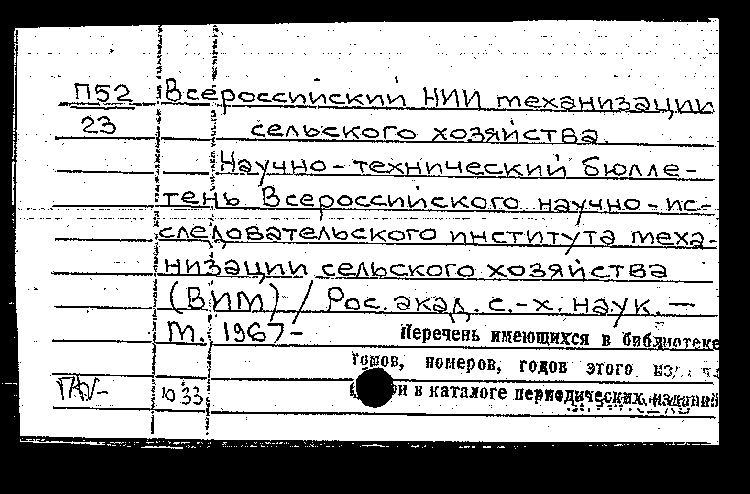 П52 Всероссийский НИИ механизации
23 сельского хозяйства.
Научно-технический бюлле-
тень Всероссийского научно-ис-
следовательского института меха-
низации сельского хозяйства
(ВИМ) / Рос. акад. с.-х. наук. —
М. 1967-
Перечень имеющихся в библиотеке
томов, номеров, годов этого
и в каталоге периодических изданий
1033